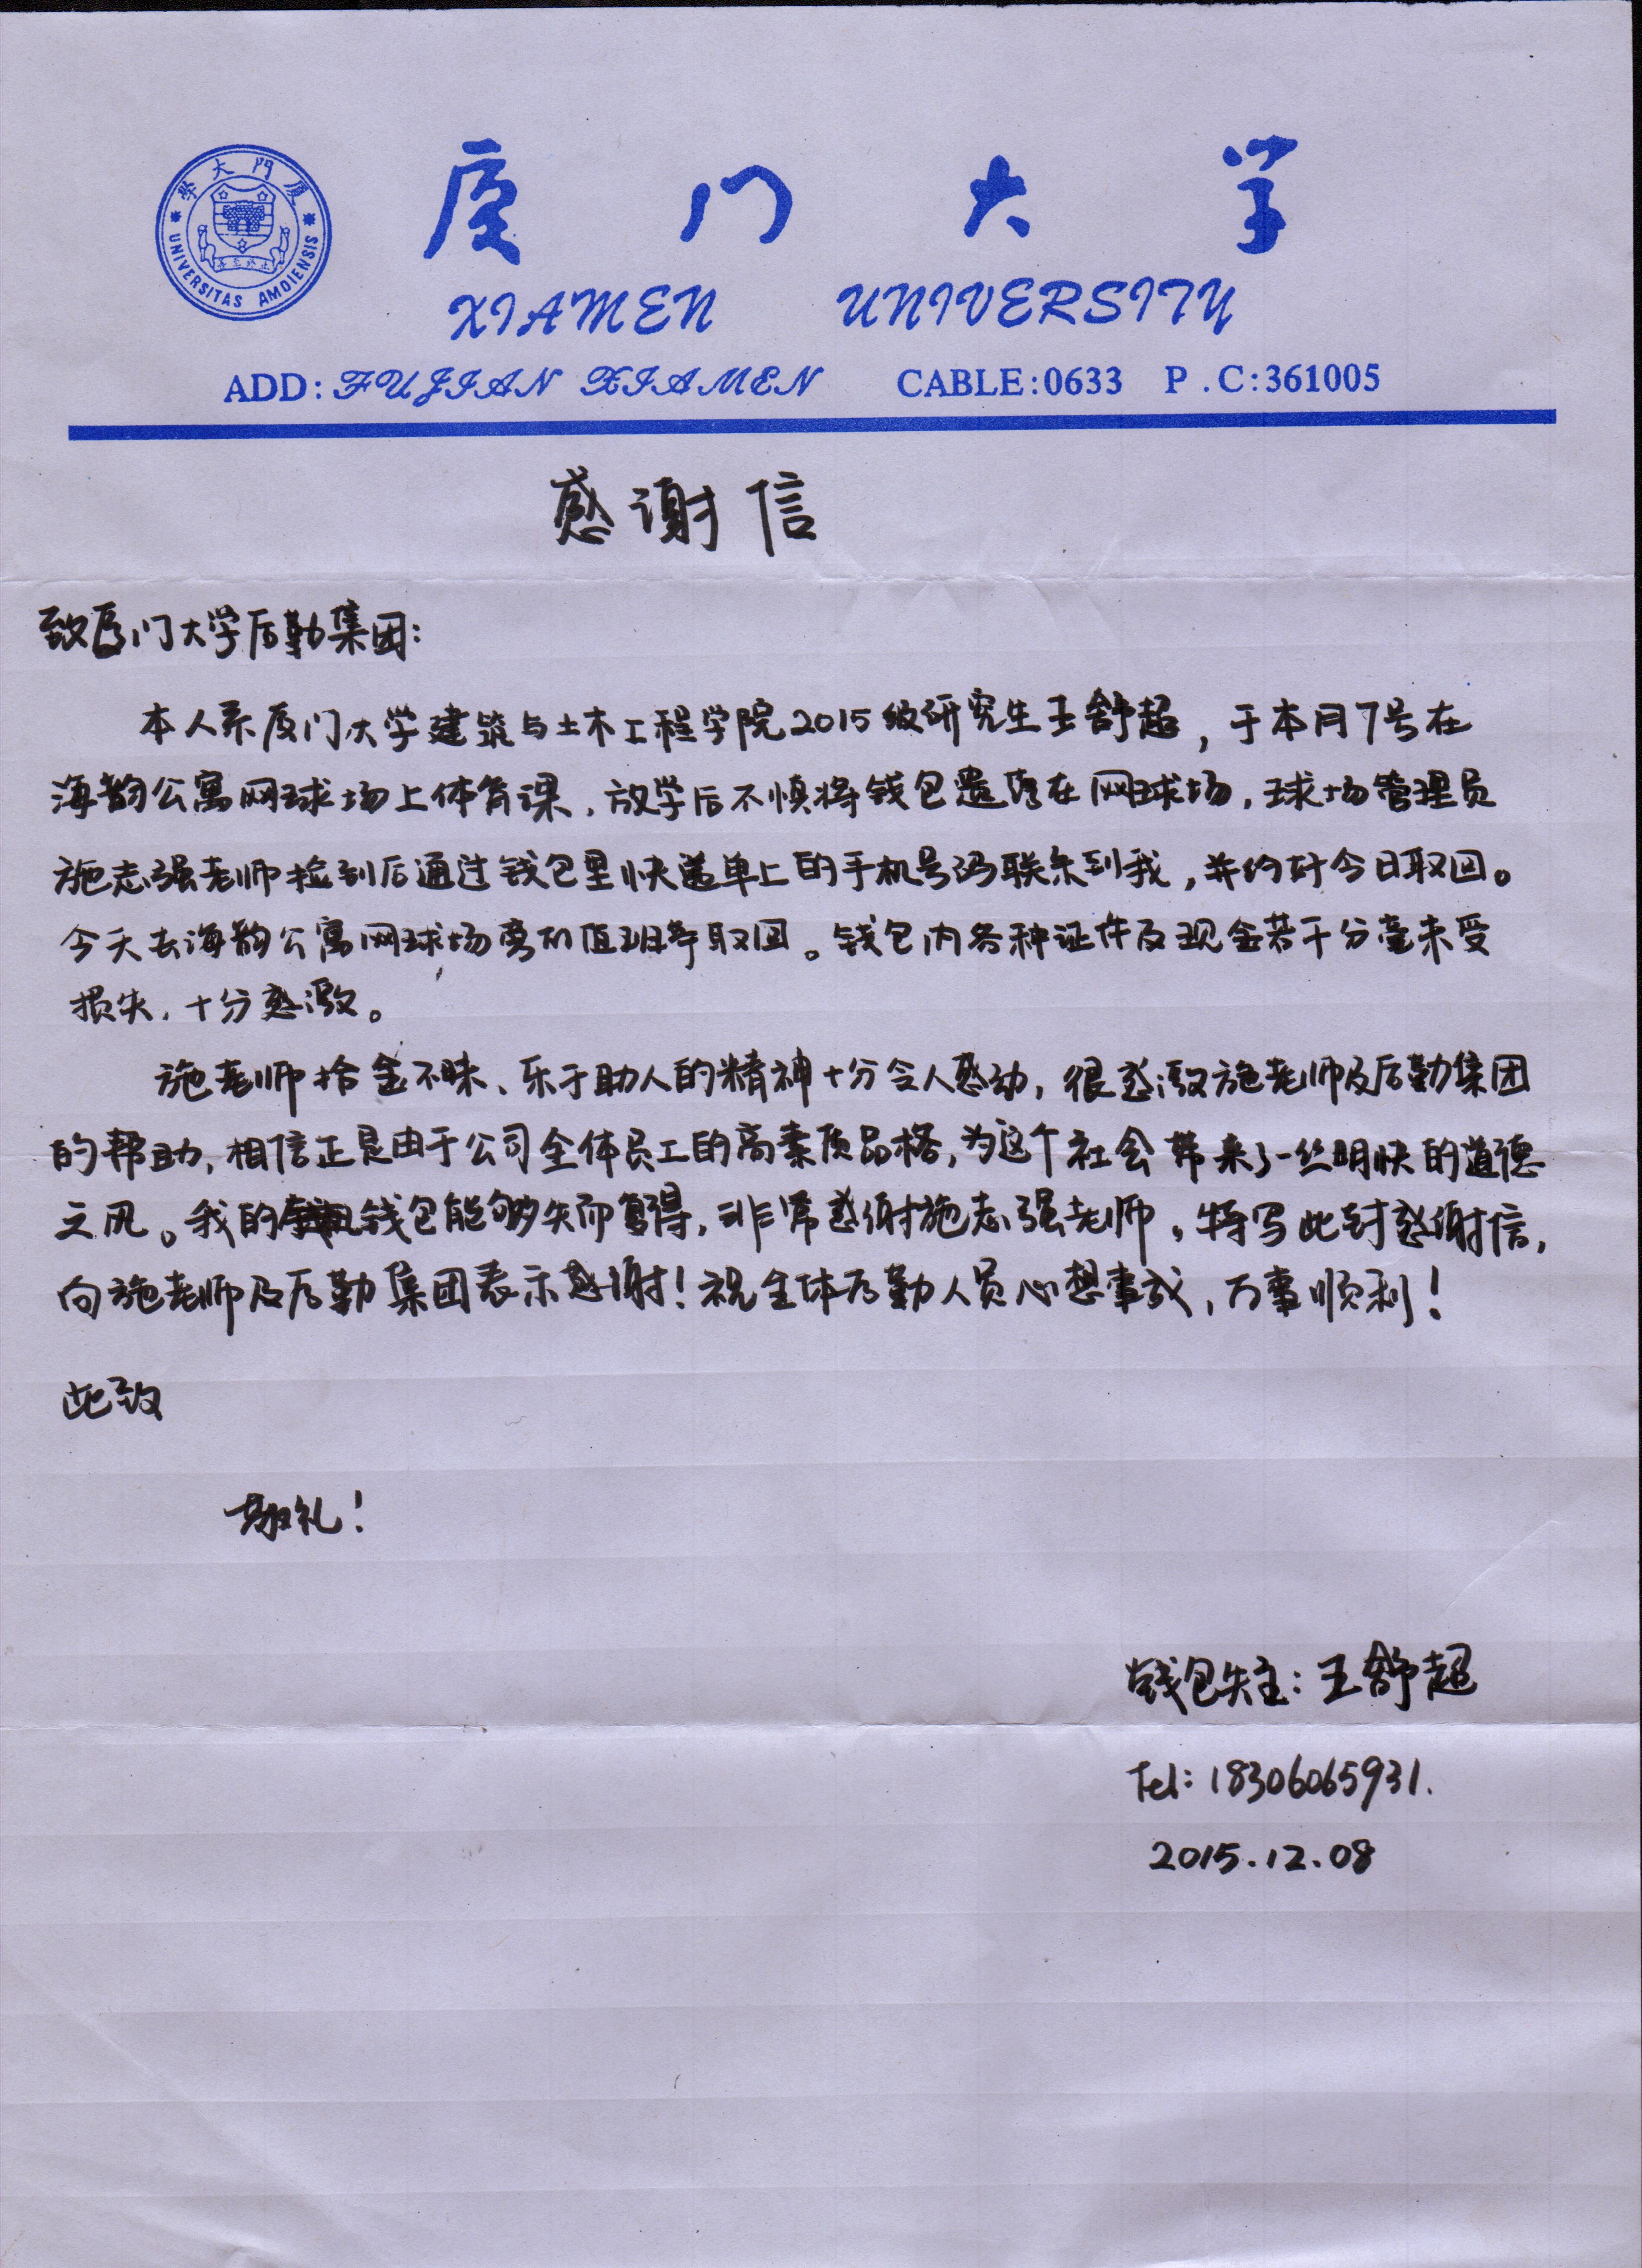 廈門大學
UNIVERSITAS AMOIENSIS
厦门大学
XIAMEN UNIVERSITY
ADD: FUJIAN XIAMEN CABLE:0633 P.C:361005
感谢信
致厦门大学后勤集团:
本人系厦门大学建筑与土木工程学院2015级研究生王舒超,于本月7号在
海韵公寓网球场上体育课,放学后不慎将钱包遗落在网球场,球场管理员
施志强老师捡到后通过钱包里快递单上的手机号码联系到我,并约好今日取回。
今天去海韵公寓网球场旁的值班亭取回。钱包内各种证件及现金若干分毫未受
损失,十分感激。
施老师拾金不昧、乐于助人的精神十分令人感动,很感激施老师及后勤集团
的帮助,相信正是由于公司全体员工的高素质品格,为这个社会带来了一丝明快的道德
之风。我的钱包能够失而复得,非常感谢施志强老师,特写此封感谢信,
向施老师及后勤集团表示感谢!祝全体后勤人员心想事成,万事顺利!
此致
敬礼!
钱包失主:王舒超
Tel: 18306065931.
2015.12.08